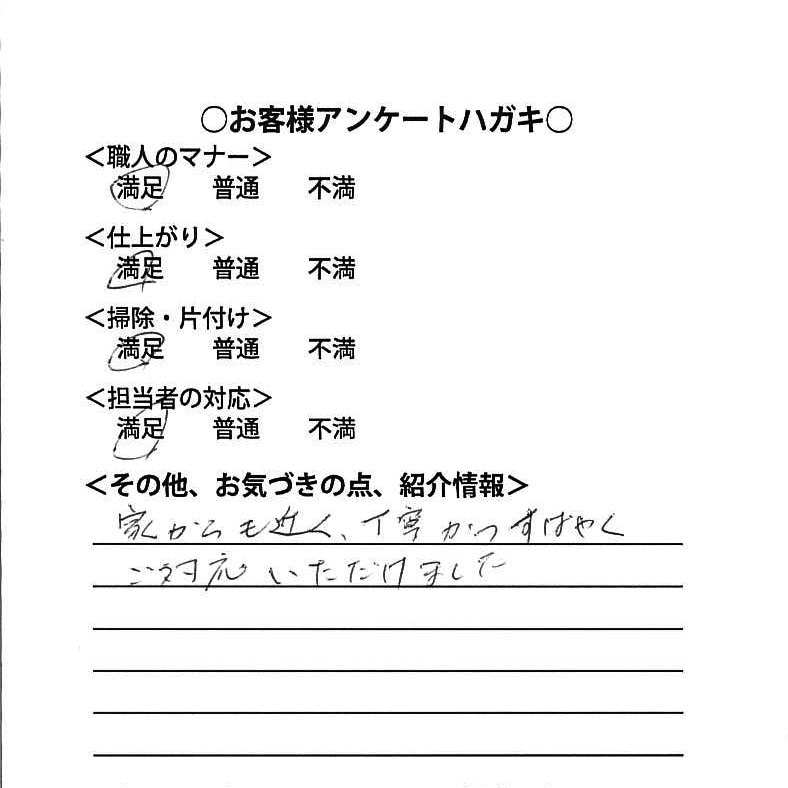 ○お客様アンケートハガキ○
＜職人のマナー＞
満足 普通 不満
＜仕上がり＞
満足 普通 不満
＜掃除・片付け＞
満足 普通 不満
＜担当者の対応＞
満足 普通 不満
＜その他、お気づきの点、紹介情報＞
家からも近く、丁寧かつすばやく
ご対応いただけました